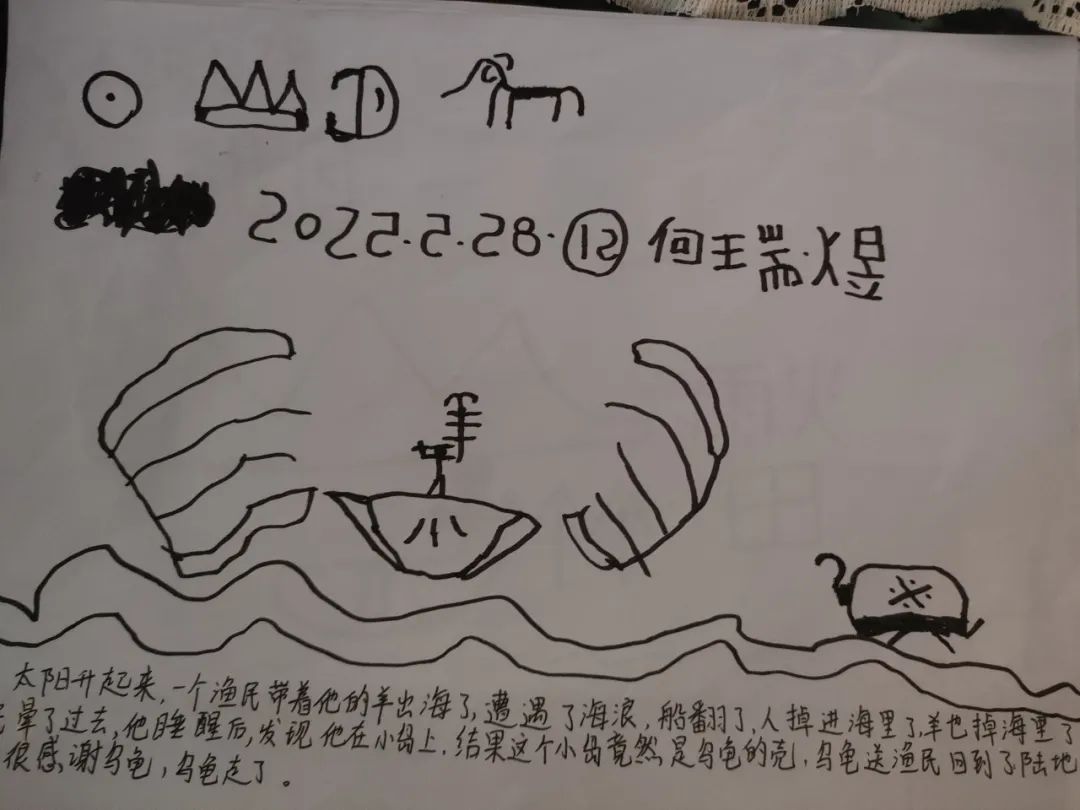 2022.2.28.⑫ 何王瑞.煜
羊
小
太阳升起来,一个渔民带着他的羊出海了,遭遇了海浪,船翻了,人掉进海里了,羊也掉海里了
晕了过去,他睡醒后,发现他在小岛上,结果这个小岛竟然是乌龟的壳,乌龟送渔民回到了陆地
很感谢乌龟,乌龟走了。